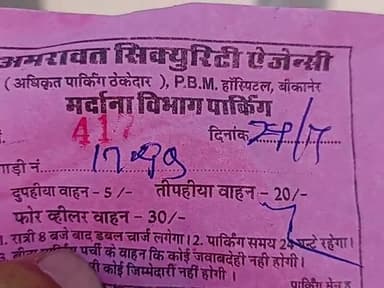 अमरावत सिक्युरिटी ऐजेन्सी
( अधिकृत पार्किंग ठेकेदार ), P.B.M. हॉस्पिटल, बीकानेर
मर्दाना विभाग पार्किंग
417 दिनांक
गाड़ी नं.
दुपहीया वाहन – 5 /– तीपहीया वाहन – 20/–
फोर व्हीलर वाहन – 30/–
1. रात्री 8 बजे बाद डबल चार्ज लगेगा। 2. पार्किंग समय 24 घन्टे रहेगा।
पर्ची के वाहन कि कोई जवाबदेही नही होगी।
की कोई जिम्मेदारी नहीं होगी ।
पार्किंग